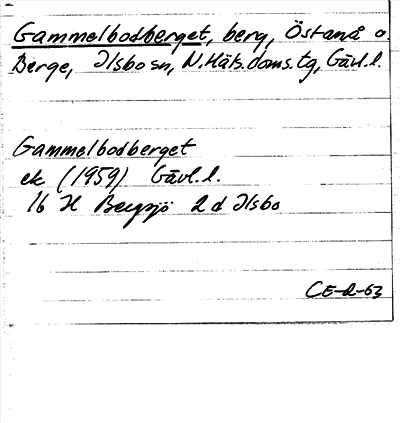 Gammelbodberget, berg, Östanå o.
Berge, Ilsbo sn, N.Häls.doms.tg, Gävl.l.
Gammelbodberget
ek (1959) Gävl.l.
16 H Bergsjö 2 d Ilsbo
CE-R-63